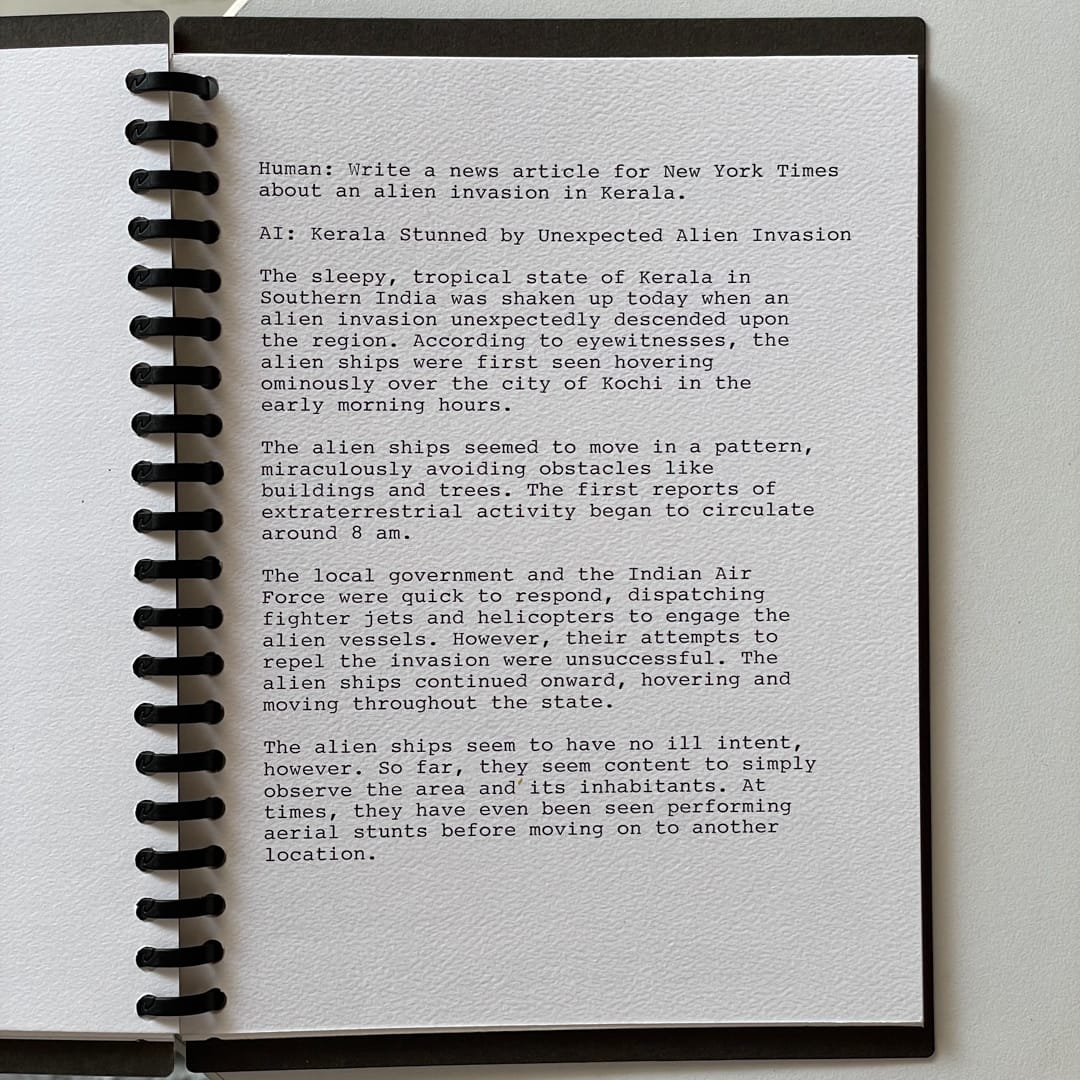 Human: Write a news article for New York Times
about an alien invasion in Kerala.
AI: Kerala Stunned by Unexpected Alien Invasion
The sleepy, tropical state of Kerala in
Southern India was shaken up today when an
alien invasion unexpectedly descended upon
the region. According to eyewitnesses, the
alien ships were first seen hovering
ominously over the city of Kochi in the
early morning hours.
The alien ships seemed to move in a pattern,
miraculously avoiding obstacles like
buildings and trees. The first reports of
extraterrestrial activity began to circulate
around 8 am.
The local government and the Indian Air
Force were quick to respond, dispatching
fighter jets and helicopters to engage the
alien vessels. However, their attempts to
repel the invasion were unsuccessful. The
alien ships continued onward, hovering and
moving throughout the state.
The alien ships seem to have no ill intent,
however. So far, they seem content to simply
observe the area and its inhabitants. At
times, they have even been seen performing
aerial stunts before moving on to another
location.